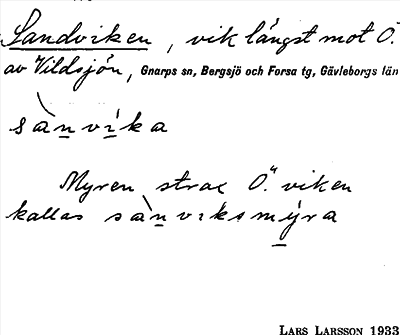 Sandviken, vik längst mot Ö.
av Vildsjön, Gnarps sn, Bergsjö och Forsa tg, Gävleborgs län
sànvíka
Myren strax Ö. viken
kallas sànviksmýra
LARS LARSSON 1933